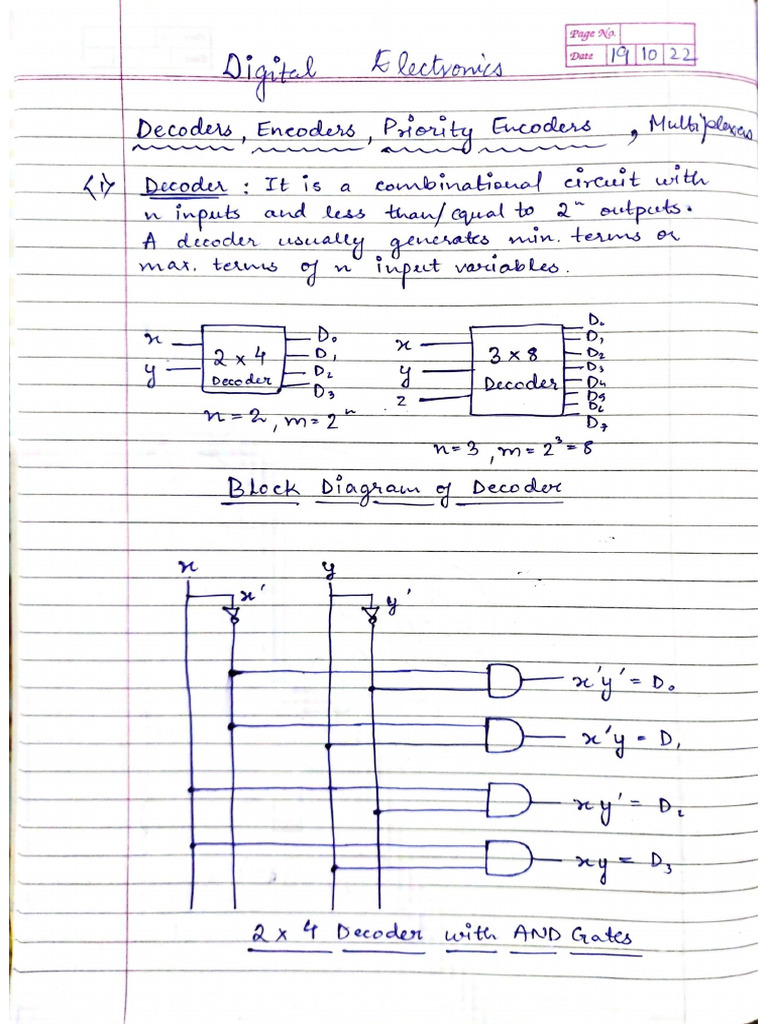 Page No.
Date 19 10 22
Digital Electronics
Decoders, Encoders, Priority Encoders, Multiplexers
<i> Decoder : It is a combinational circuit with
n inputs and less than/equal to 2ⁿ outputs.
A decoder usually generates min. terms or
max. terms of n input variables.
x
y
2 x 4
Decoder
D₀
D₁
D₂
D₃
n = 2, m = 2ⁿ
x
y
z
3 x 8
Decoder
D₀
D₁
D₂
D₃
D₄
D₅
D₆
D₇
n = 3, m = 2³ = 8
Block Diagram of Decoder
x x' y y'
x'y' = D₀
x'y = D₁
xy' = D₂
xy = D₃
2 x 4 Decoder with AND Gates